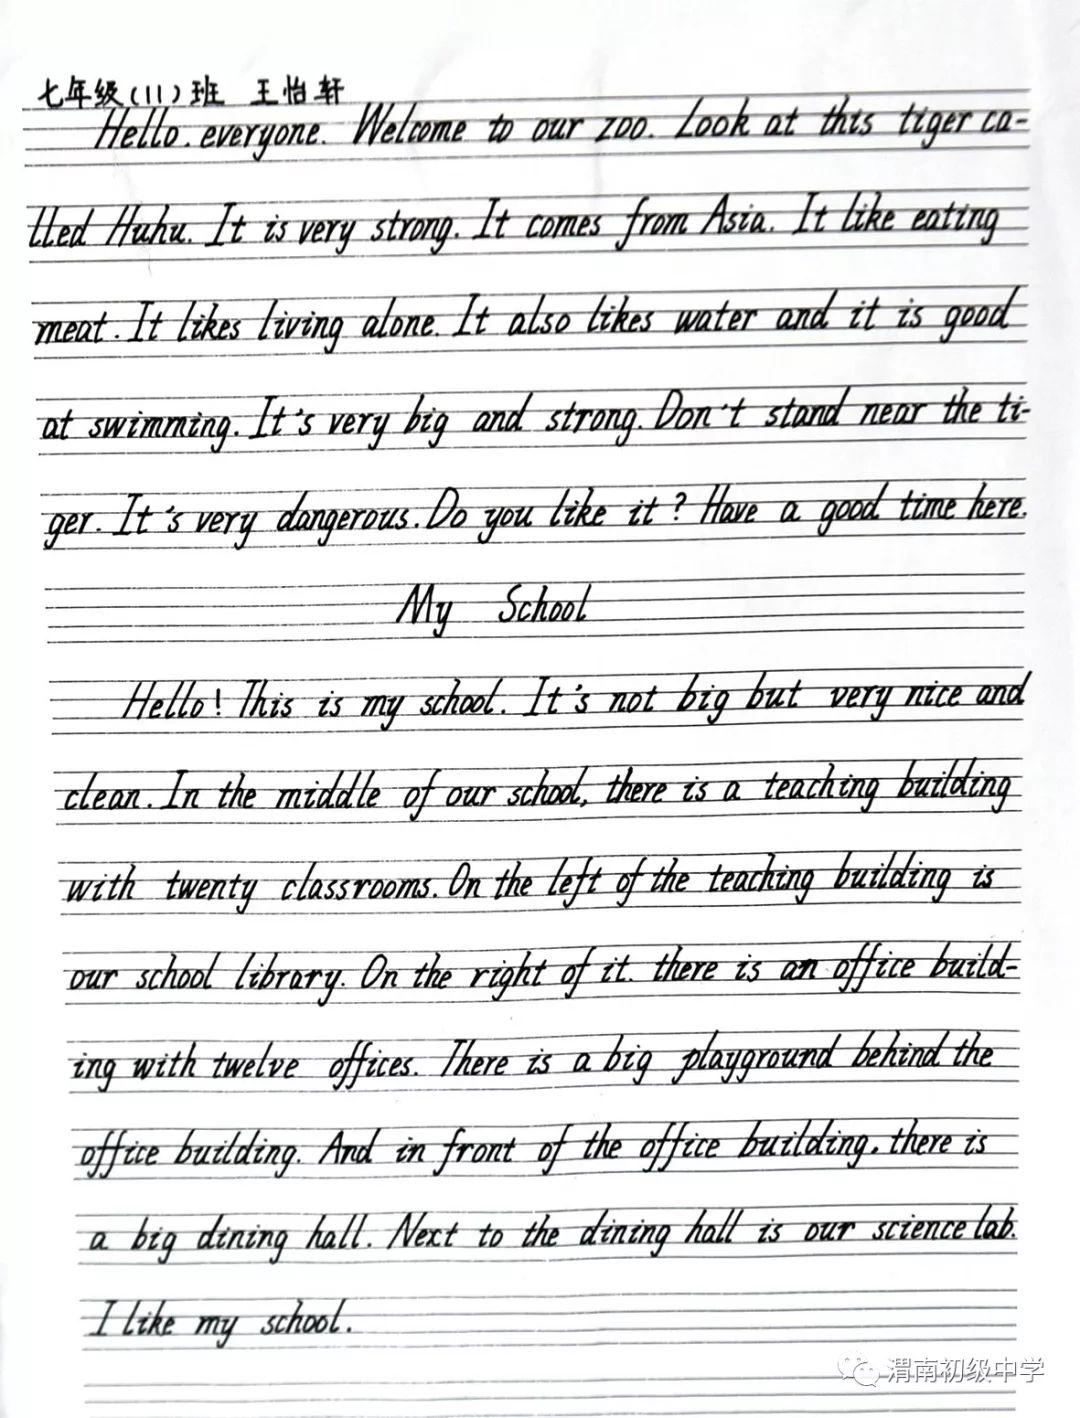 七年级(11)班 王怡轩
Hello. everyone. Welcome to our zoo. Look at this tiger ca-
lled Huhu. It is very strong. It comes from Asia. It like eating
meat. It likes living alone. It also likes water and it is good
at swimming. It's very big and strong. Don't stand near the ti-
ger. It's very dangerous. Do you like it? Have a good time here.
My School
Hello! This is my school. It's not big but very nice and
clean. In the middle of our school, there is a teaching building
with twenty classrooms. On the left of the teaching building is
our school library. On the right of it. there is an office build-
ing with twelve offices. There is a big playground behind the
office building. And in front of the office building, there is
a big dining hall. Next to the dining hall is our science lab.
I like my school.
渭南初级中学